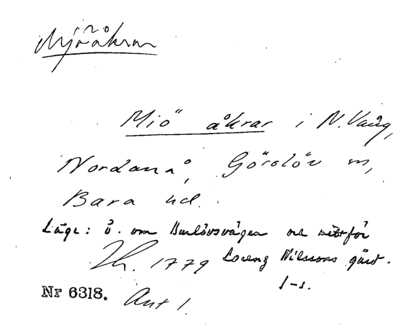 Mjöåkrar
Miö åkrar i N. Vång,
Nordanå, Görslöv sn,
Bara hd.
Läge: ö. om Burlövsvägen och mitt för
Lorenz Nilssons gård.
Zh. 1779
I-s.
Nr 6318. Akt 1.